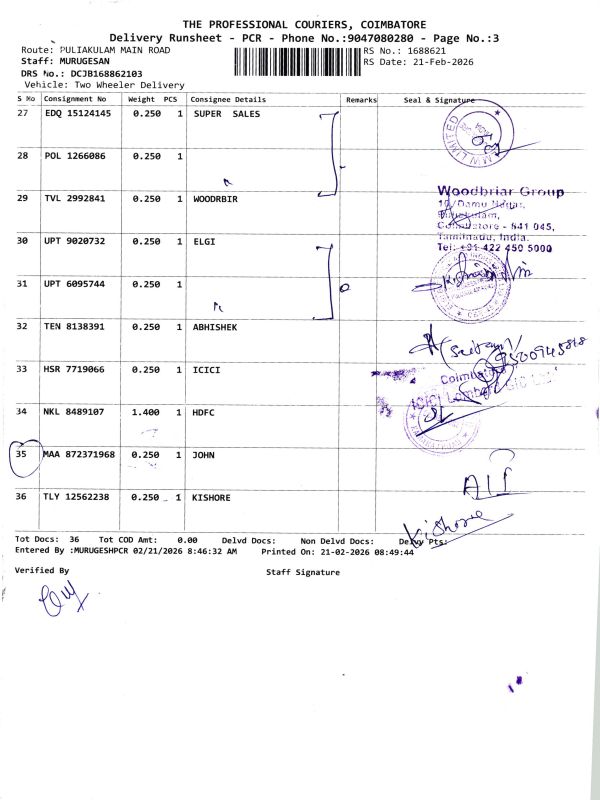 THE PROFESSIONAL COURIERS, COIMBATORE
Delivery Runsheet - PCR - Phone No.:9047080280 - Page No.:3
Route: PULIAKULAM MAIN ROAD RS No.: 1688621
Staff: MURUGESAN RS Date: 21-Feb-2026
DRS No.: DCJB168862103
Vehicle: Two Wheeler Delivery
S No Consignment No Weight PCS Consignee Details Remarks Seal & Signature
27 EDQ 15124145 0.250 1 SUPER SALES
28 POL 1266086 0.250 1
29 TVL 2992841 0.250 1 WOODRBIR
Woodbriar Group
Coimbatore - 641 045,
Tamilnadu, India.
Tel: +91 422 450 5000
30 UPT 9020732 0.250 1 ELGI
31 UPT 6095744 0.250 1
32 TEN 8138391 0.250 1 ABHISHEK
33 HSR 7719066 0.250 1 ICICI
Coimbatore
ICICI Lombard
34 NKL 8489107 1.400 1 HDFC
35 MAA 872371968 0.250 1 JOHN
36 TLY 12562238 0.250 1 KISHORE
Kishore
Tot Docs: 36 Tot COD Amt: 0.00 Delvd Docs: Non Delvd Docs: Delvy Pts:
Entered By :MURUGESHPCR 02/21/2026 8:46:32 AM Printed On: 21-02-2026 08:49:44
Verified By Staff Signature